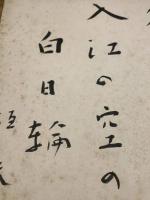 入江の空の
白日輪